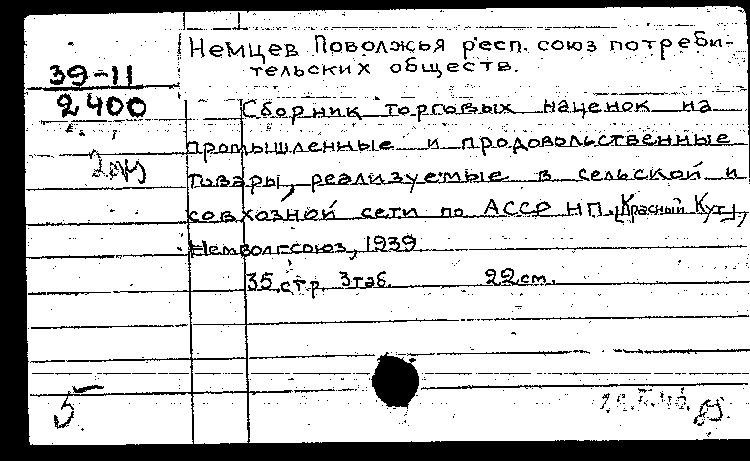 Немцев Поволжья респ. союз потреби-
тельских обществ.
39-11
2400
Сборник торговых наценок на
промышленные и продовольственные
товары, реализуемые в сельской и
совхозной сети по АССР НП. [Красный Кут],
Немволгсоюз, 1939
35 стр. 3 таб. 22 см.
5